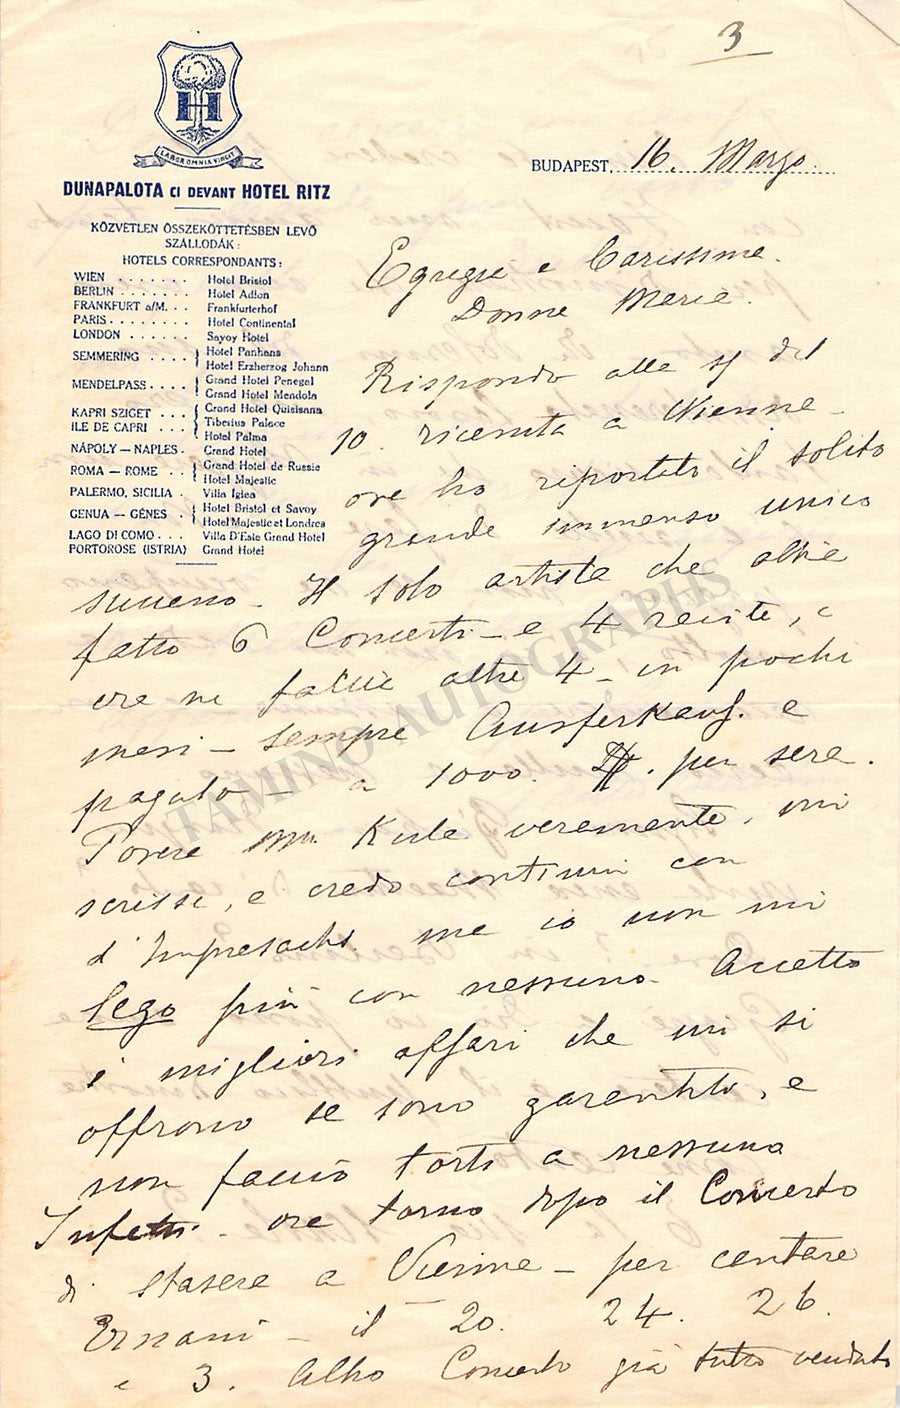 3
LABOR OMNIA VINCIT
DUNAPALOTA CI DEVANT HOTEL RITZ
BUDAPEST, 16. Marzo.
KÖZVETLEN ÖSSZEKÖTTETÉSBEN LEVŐ
SZÁLLODÁK:
HOTELS CORRESPONDANTS:
WIEN . . . . . . . Hotel Bristol
BERLIN . . . . . . . Hotel Adlon
FRANKFURT a/M. . . Frankfurterhof
PARIS . . . . . . . . Hotel Continental
LONDON . . . . . . Savoy Hotel
SEMMERING . . . . { Hotel Panhans
Hotel Erzherzog Johann
MENDELPASS . . . . { Grand Hotel Penegel
Grand Hotel Mendola
KAPRI SZIGET . . . { Grand Hotel Quisisana
ILE DE CAPRI . . . { Tiberius Palace
Hotel Palma
NÁPOLY — NAPLES . Grand Hotel
ROMA — ROME . . { Grand Hotel de Russie
Hotel Majestic
PALERMO, SICILIA . Villa Igiea
GENUA — GÉNES . { Hotel Bristol et Savoy
Hotel Majestic et Londres
LAGO DI COMO . . . Villa D'Este Grand Hotel
PORTOROSE (ISTRIA) Grand Hotel
Egregia e Carissima
Donna Maria.
Rispondo alla del
10. ricevuta a Vienna
ove ho riportato il solito
grande immenso unico
successo - Il solo artista che abbia
fatto 6 Concerti - e 4 recite, e
ora ne faccio altre 4 - in pochi
mesi - sempre Ausferkauf. e
pagato - a 1000. per sera.
Kula veramente, mi
scrisse, e credo continui con
ma io non mi
lego più con nessuno. Accetto
i migliori affari che mi si
offrono se sono garantiti, e
non faccio torti a nessuno
Infatti - ora torno dopo il Concerto
di stasera a Vienna - per cantare
Ernani - il 20. 24. 26.
e 3. Altro Concerto già tutto venduto
TAMINO AUTOGRAPHS